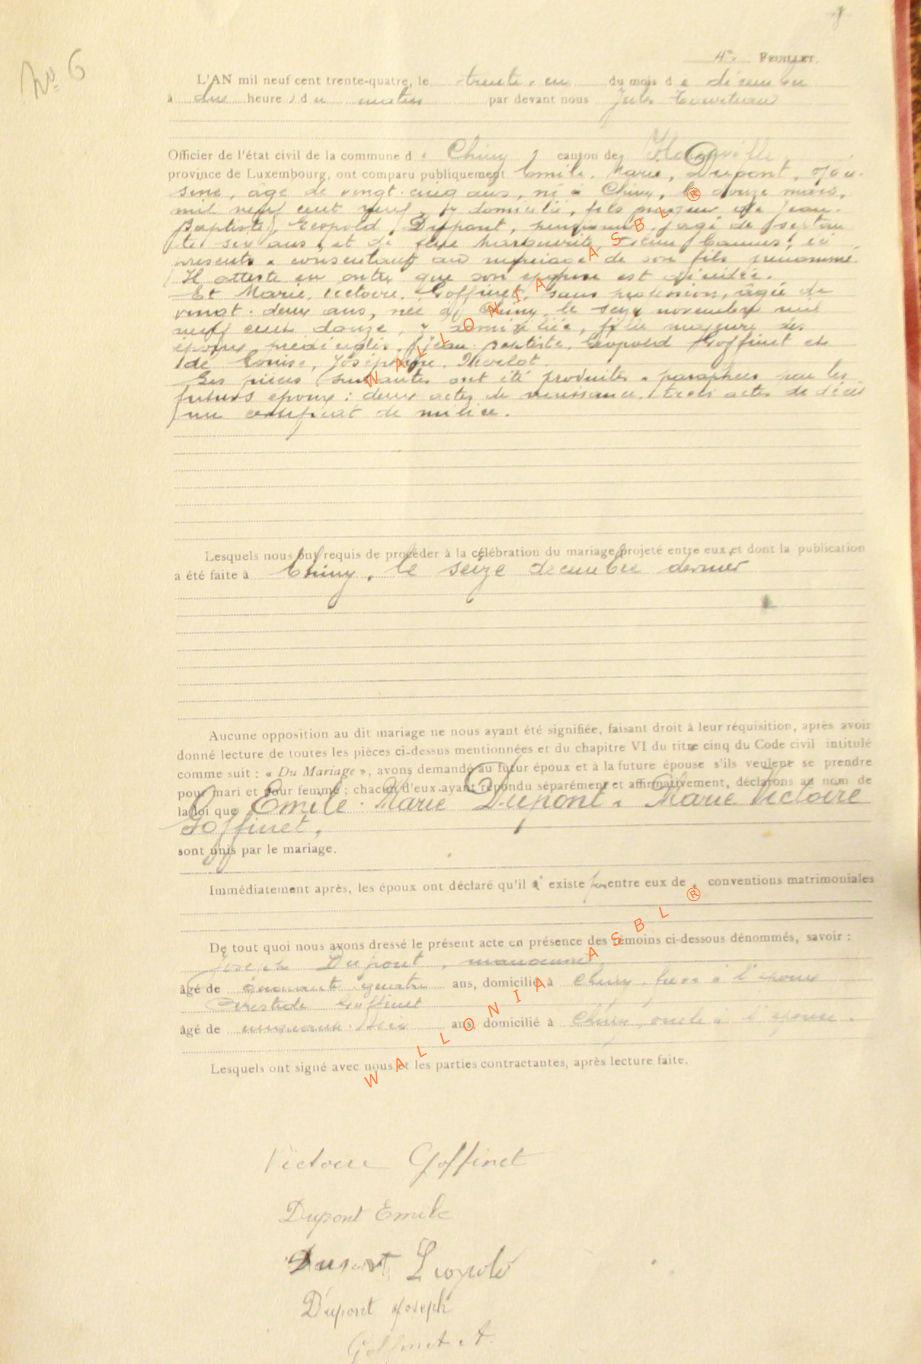 No 6
4e FEUILLET.
L'AN mil neuf cent trente-quatre, le trente-un du mois de décembre
à dix heures du matin par devant nous Jules
Officier de l'état civil de la commune de Chiny, canton de Florenville,
province de Luxembourg, ont comparu publiquement Emile, Marie, Dupont,
âgé de vingt-cinq ans, né à Chiny, le douze mars,
mil neuf cent neuf, y domicilié, fils majeur de Jean-
Baptiste, Léopold, Dupont, pensionné, âgé de
et de feue Marguerite, ici
présent & consentant au mariage de son fils prénommé.
Il atteste en outre que son épouse est décédée.
Et Marie, Victoire, Goffinet, sans profession, âgée de
vingt-deux ans, née à Chiny, le seize novembre mil
neuf cent douze, y domiciliée, fille majeure des
époux prédécédés Jean-Baptiste, Léopold Goffinet et
de Louise, Joséphine,
Les pièces suivantes ont été produites & paraphées par les
futurs époux : deux actes de naissance, trois actes de décès
un certificat de milice.
Lesquels nous ont requis de procéder à la célébration du mariage projeté entre eux et dont la publication
a été faite à Chiny, le seize décembre dernier
Aucune opposition au dit mariage ne nous ayant été signifiée, faisant droit à leur réquisition, après avoir
donné lecture de toutes les pièces ci-dessus mentionnées et du chapitre VI du titre cinq du Code civil intitulé
comme suit : « Du Mariage », avons demandé au futur époux et à la future épouse s'ils veulent se prendre
pour mari et pour femme ; chacun d'eux ayant répondu séparément et affirmativement, déclarons au nom de
la loi que Emile-Marie Dupont & Marie Victoire
Goffinet,
sont unis par le mariage.
Immédiatement après, les époux ont déclaré qu'il n'existe pas entre eux de conventions matrimoniales
De tout quoi nous avons dressé le présent acte en présence des témoins ci-dessous dénommés, savoir :
Joseph Dupont, manœuvre,
âgé de quatre ans, domicilié à Chiny, à l'époux
Aristide Goffinet
âgé de ans, domicilié à Chiny, oncle à l'épouse.
Lesquels ont signé avec nous et les parties contractantes, après lecture faite.
Victoire Goffinet
Dupont Emile
Dupont Léopold
Dupont Joseph
Goffinet A.
WALLONIA ASBL ®
WALLONIA ASBL ®